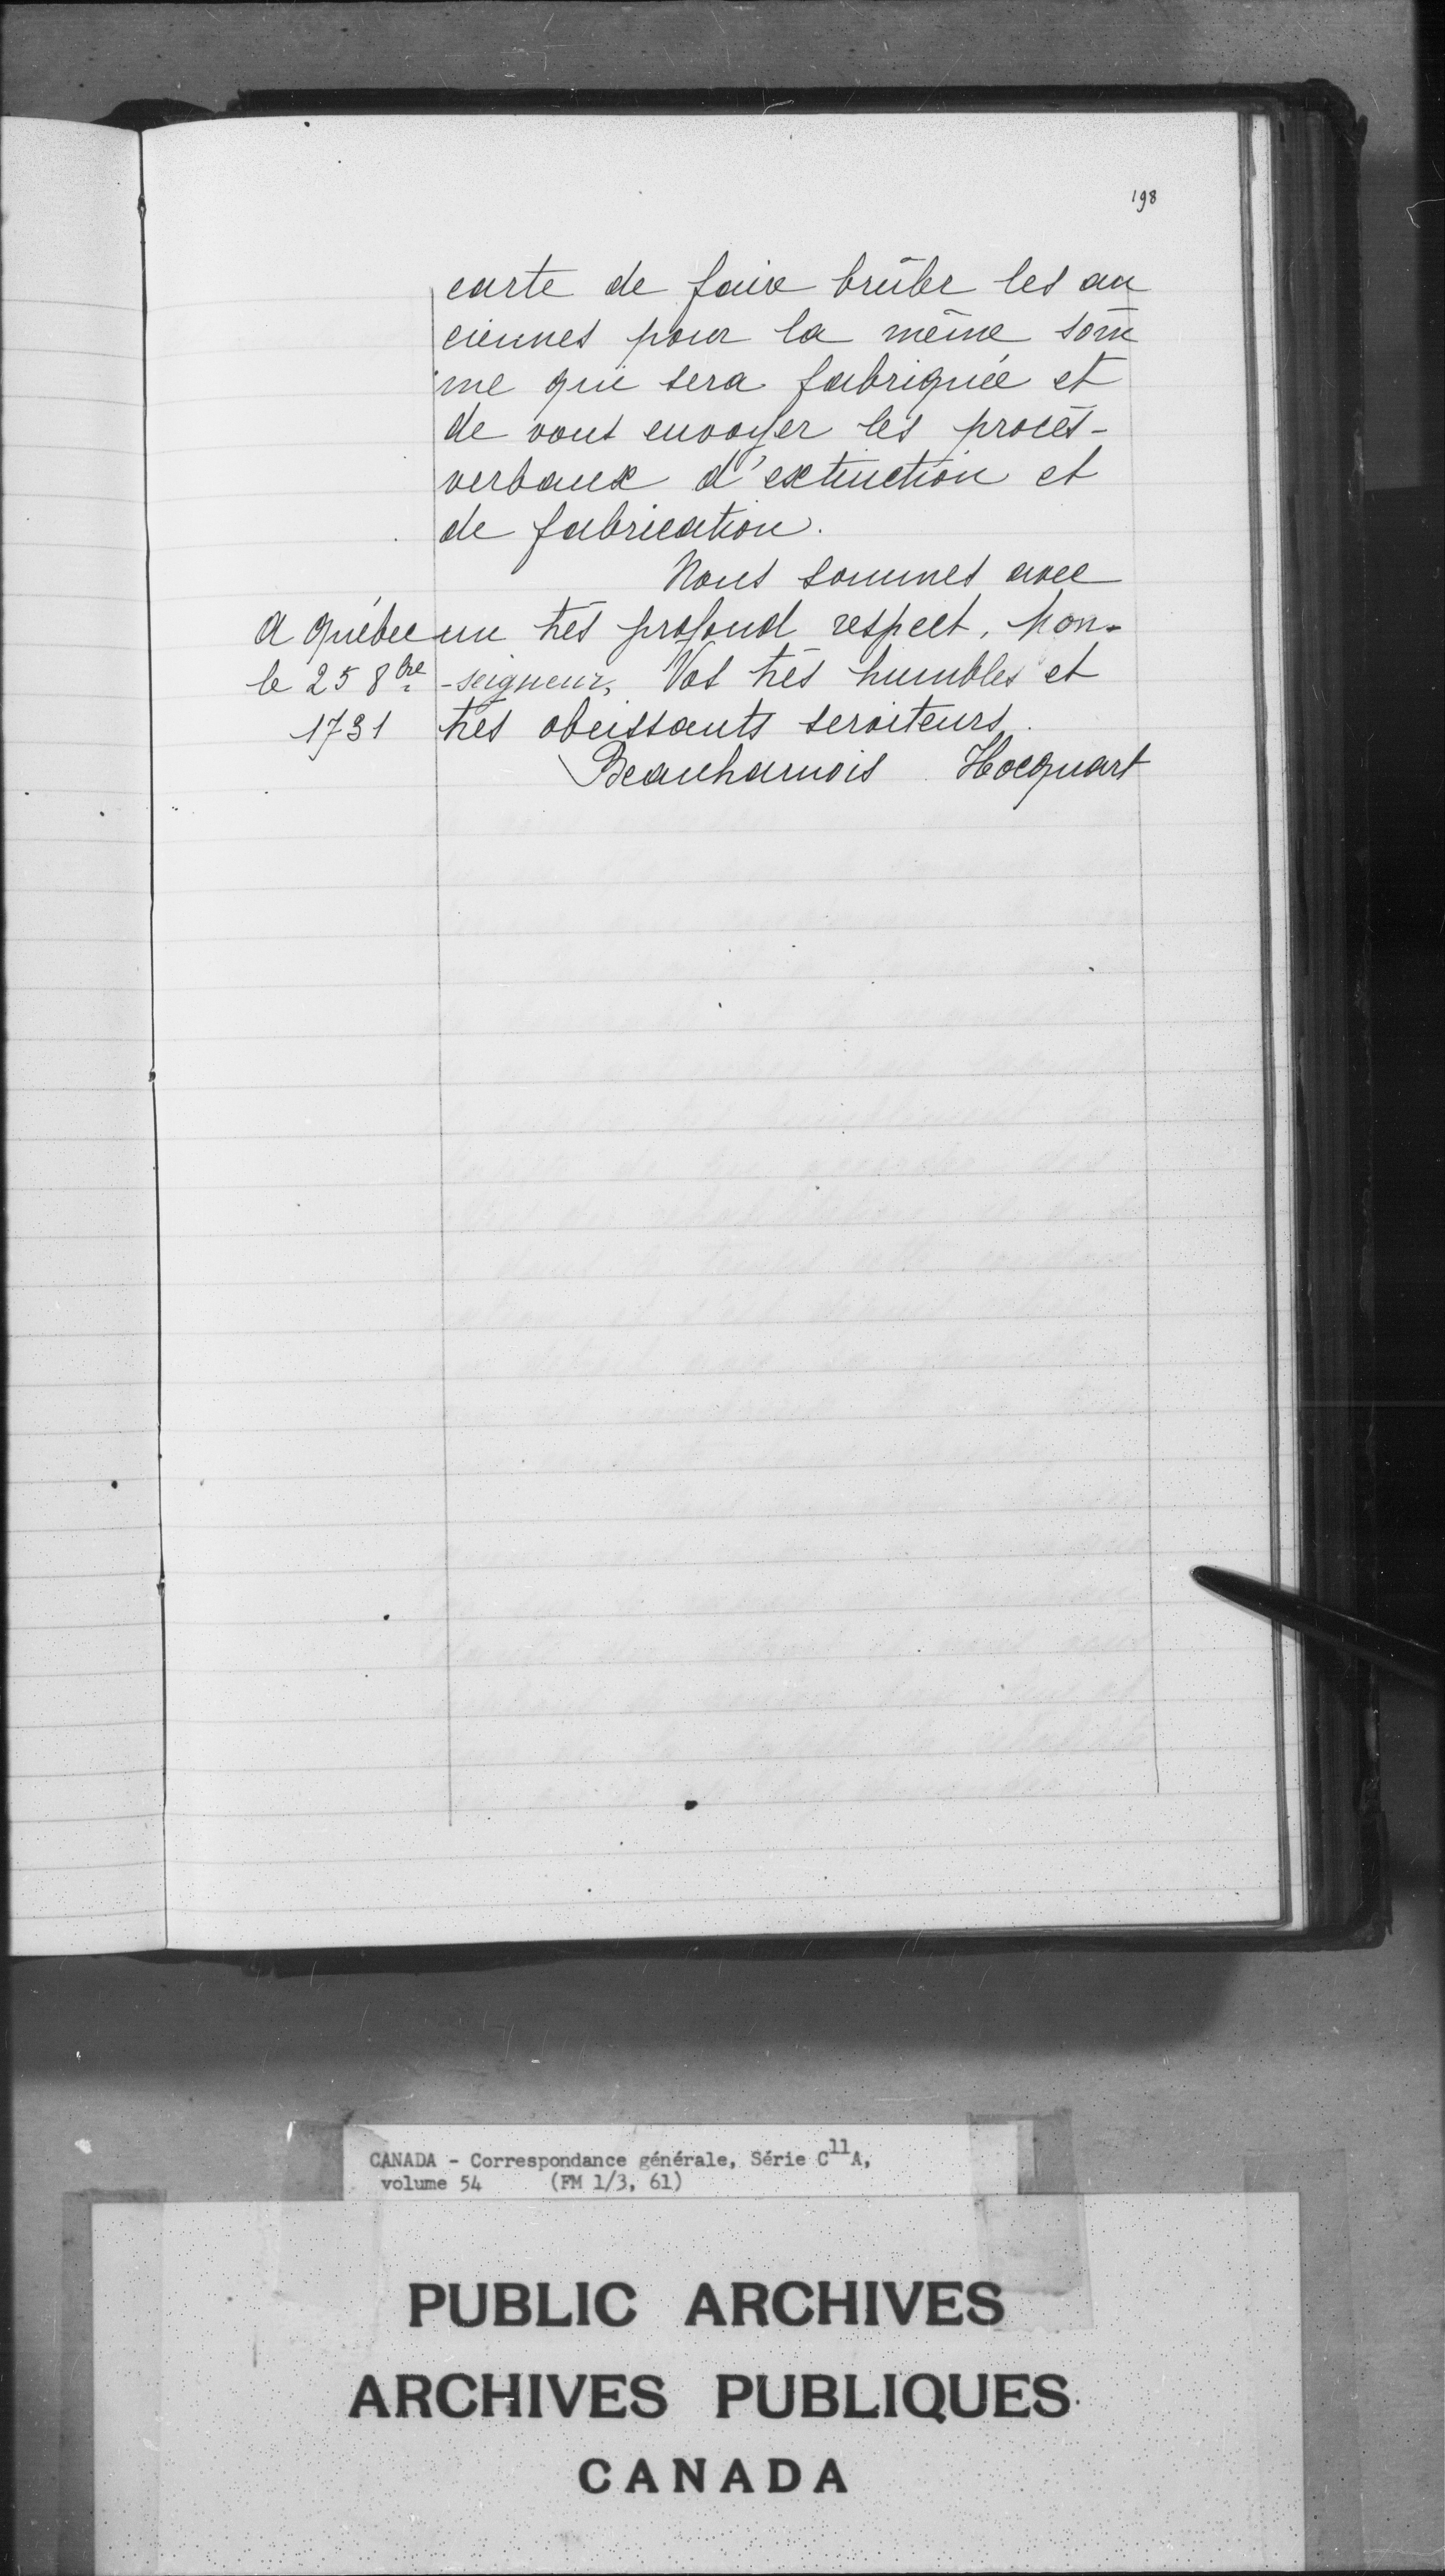 198
carte de faire brûler les an
ciennes pour la même som
me qui sera fabriquée et
de vous envoyer les procès-
verbaux d'extinction et
de fabrication.
Nous sommes avec
un très profond respect, Mon-
-seigneur, Vos très humbles et
très obeissants serviteurs.
Beauharnois Hocquart
A Québec
le 25 8bre
1731
CANADA - Correspondance générale, Série C11A,
volume 54 (FM 1/3, 61)
PUBLIC ARCHIVES
ARCHIVES PUBLIQUES
CANADA